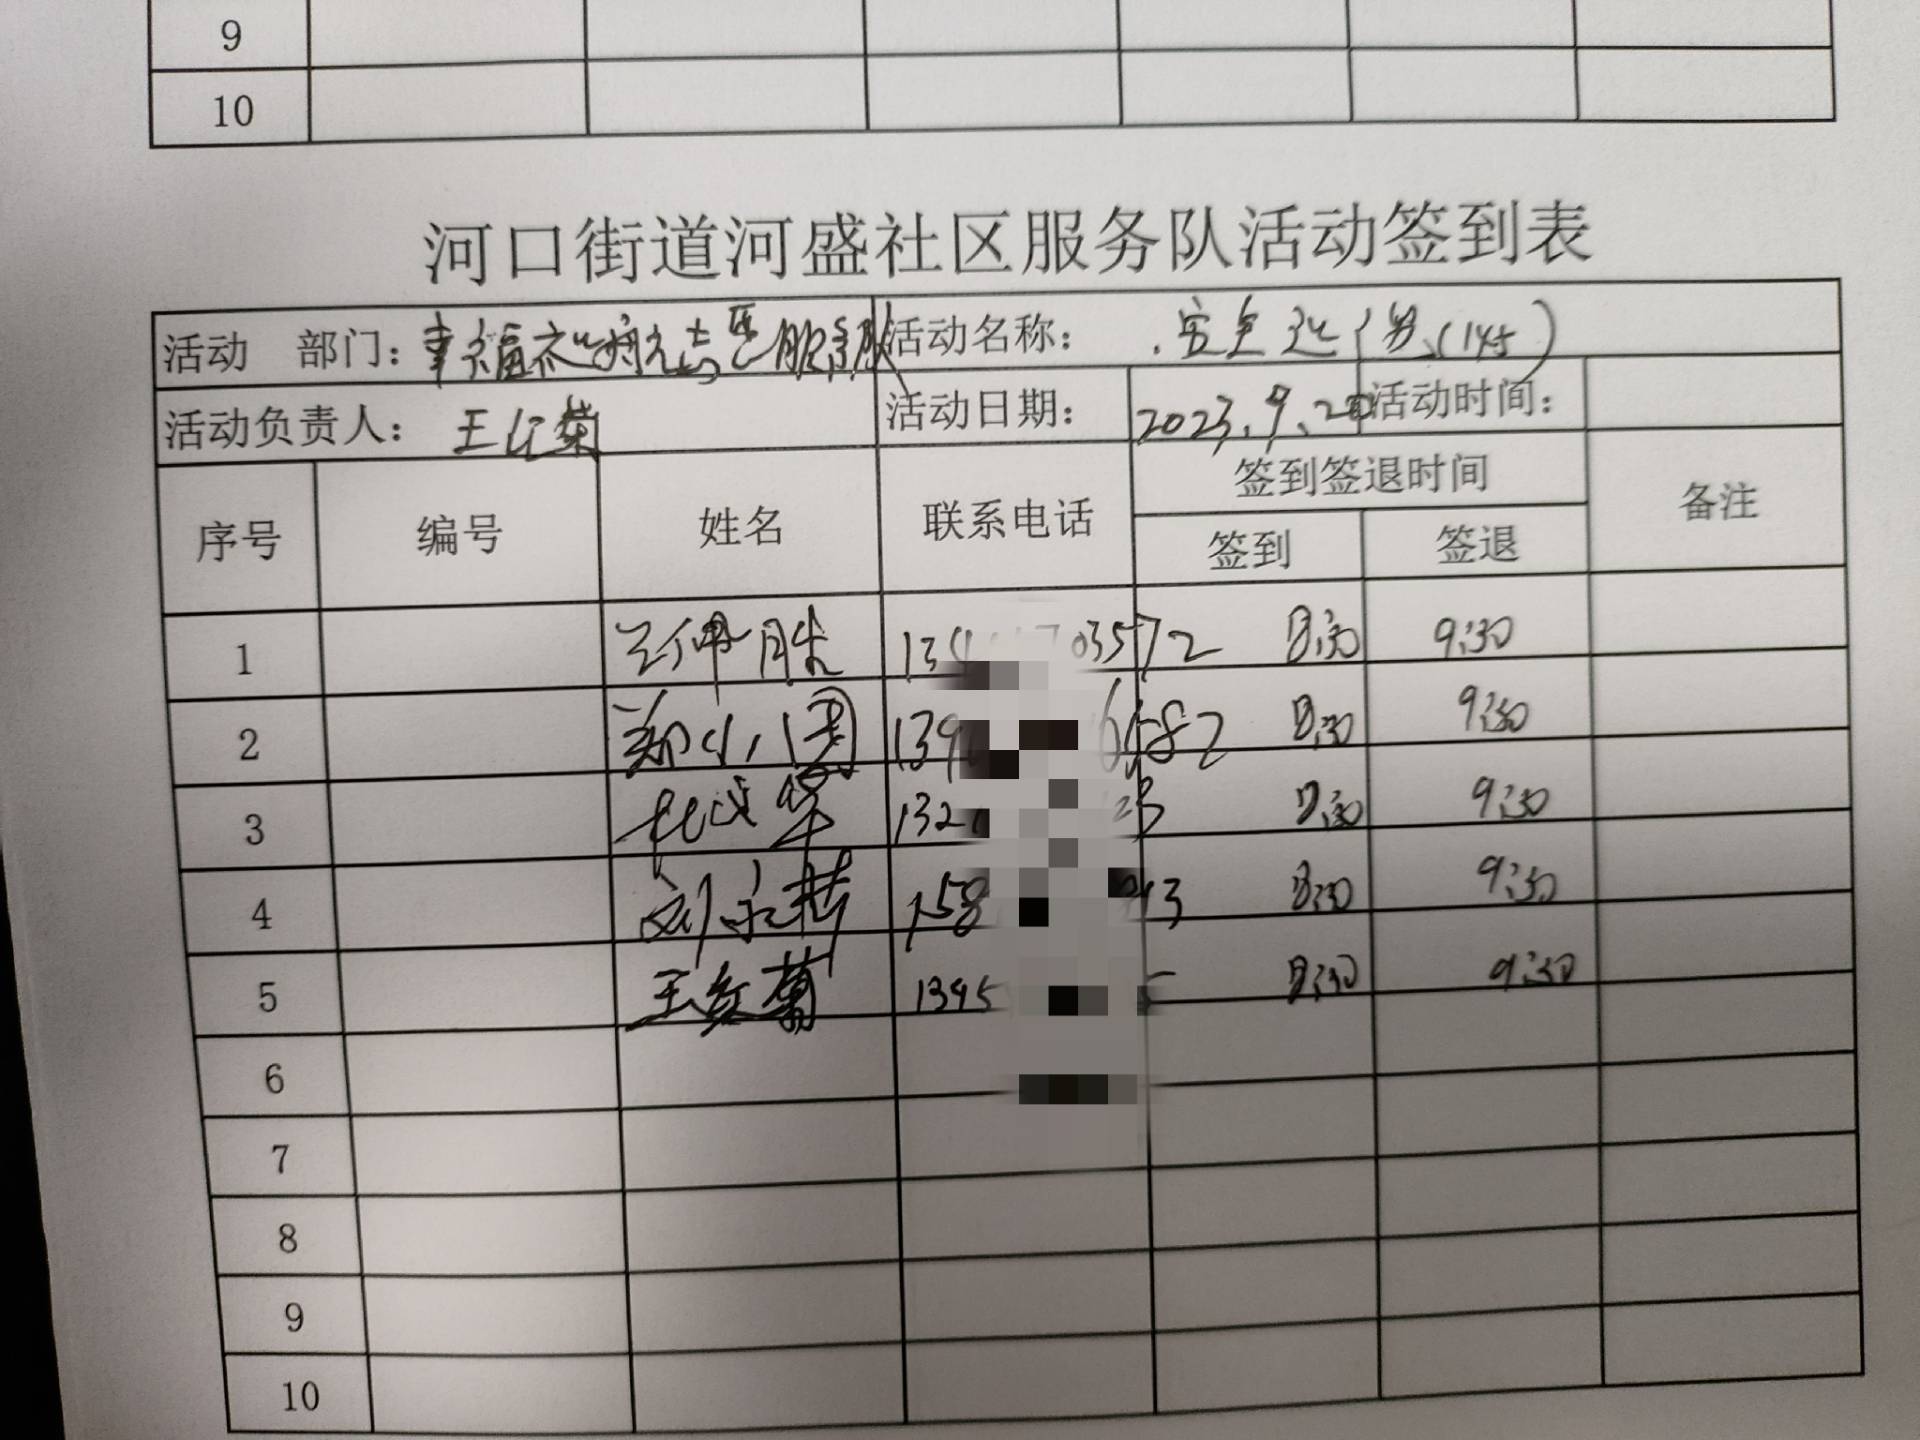 9
10
河口街道河盛社区服务队活动签到表
活动 部门：幸福社 服务队 活动名称： 安全 (145)
活动负责人：王红菊 活动日期：2023.9.20 活动时间：
序号 编号 姓名 联系电话 签到签退时间 备注
签到 签退
1 13 03572 8:30 9:30
2 郑小 139 6582 8:30 9:30
3 132 23 8:30 9:30
4 刘永 158 13 8:30 9:30
5 王红菊 1395 5 8:30 9:30
6
7
8
9
10